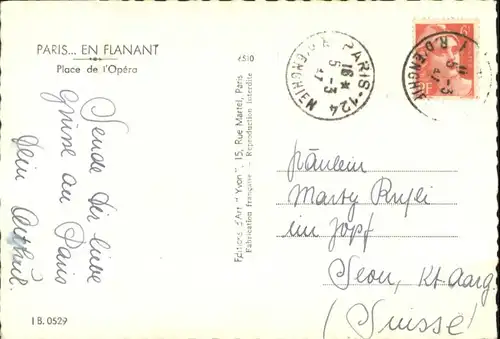 PARIS... EN FLANANT
Place de l'Opéra
Sende Dir liebe
Grüsse aus Paris
Dein
I B. 0529
6510
Editions d'Art "Yvon", 15, Rue Martel, Paris
Fabrication Française - Reproduction Interdite
PARIS·124
R. D'ENGHIEN
16 H
5-3
47
R. D'ENGHIEN
5-3
47
RF
Fräulein
Marty
im Zopf
Seon, Kt. Aarg.
(Suisse)